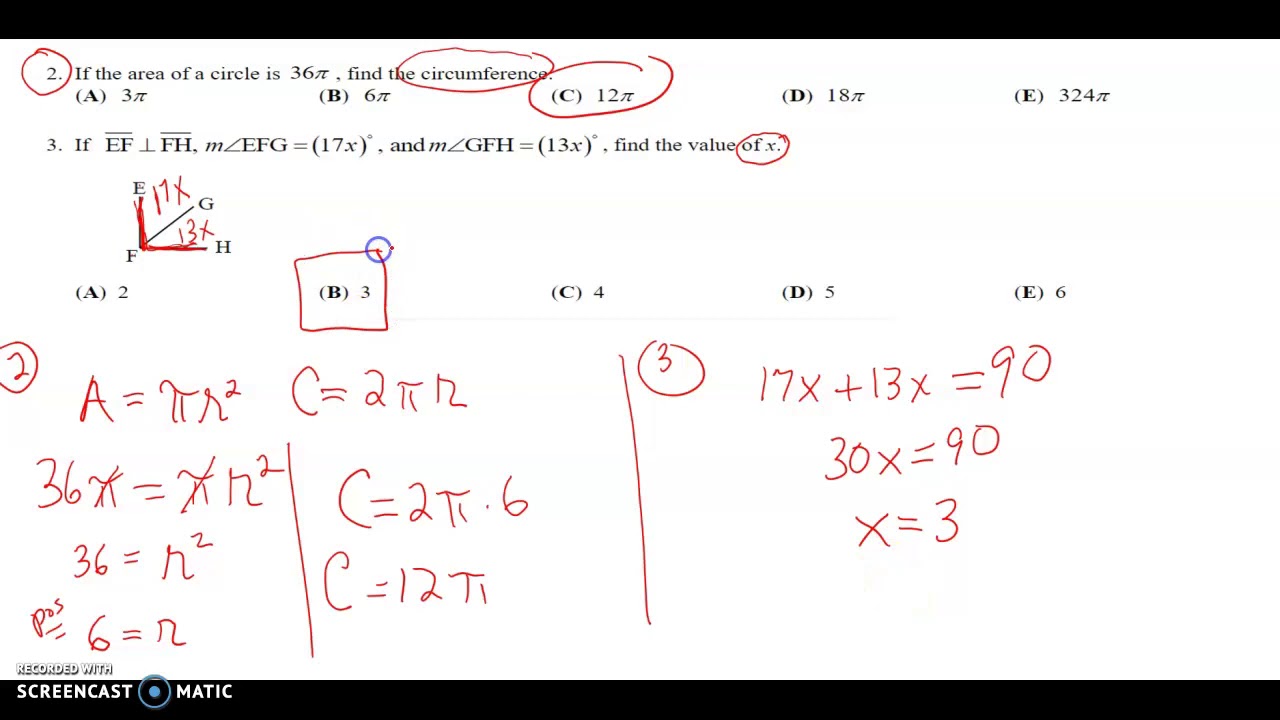 2. If the area of a circle is 36π , find the circumference.
(A) 3π (B) 6π (C) 12π (D) 18π (E) 324π
3. If E͞F͞ ⊥ F͞H͞, m∠EFG = (17x)°, and m∠GFH = (13x)°, find the value of x.
E 17x
G
13x
F H
(A) 2 (B) 3 (C) 4 (D) 5 (E) 6
2
A = πr² C = 2πr
36π = πr²
36 = r²
pos 6 = r
C = 2π · 6
C = 12π
3
17x + 13x = 90
30x = 90
x = 3
RECORDED WITH
SCREENCAST MATIC